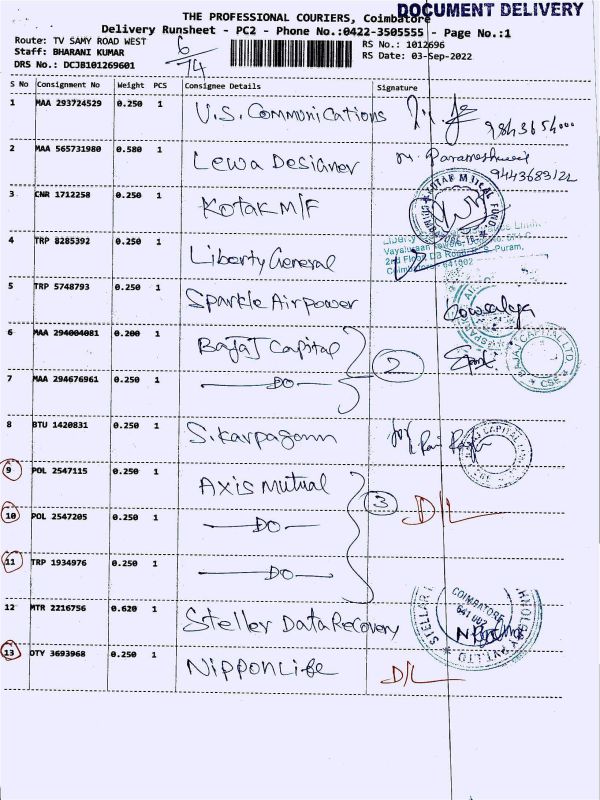 DOCUMENT DELIVERY
THE PROFESSIONAL COURIERS, Coimbatore
Delivery Runsheet - PC2 - Phone No.:0422-3505555 - Page No.:1
Route: TV SAMY ROAD WEST 6/14 RS No.: 1012696
Staff: BHARANI KUMAR RS Date: 03-Sep-2022
DRS No.: DCJB101269601
S No Consignment No Weight PCS Consignee Details Signature
1 MAA 293724529 0.250 1 U.S. Communications
2 MAA 565731980 0.580 1 Lewa Designer 9443689122
3 CNR 1712258 0.250 1 Kotak M/F KOTAK MUTUAL FUND
4 TRP 8285392 0.250 1 Liberty General
2nd Floor, DB Road, R.S. Puram,
Coimbatore - 641002
5 TRP 5748793 0.250 1 Sparkle Airpower
6 MAA 294004081 0.200 1 Bajaj Capital 2 BAJAJ CAPITAL LTD. CSE
7 MAA 294676961 0.250 1 DO
8 BTU 1420831 0.250 1 S. Karpagam
9 POL 2547115 0.250 1 Axis Mutual 3 D/L
10 POL 2547205 0.250 1 DO
11 TRP 1934976 0.250 1 DO
12 MTR 2216756 0.620 1 Steller Data Recovery STELLAR COIMBATORE 641 002 PVT. LTD
13 OTY 3693968 0.250 1 Nippon Life D/L